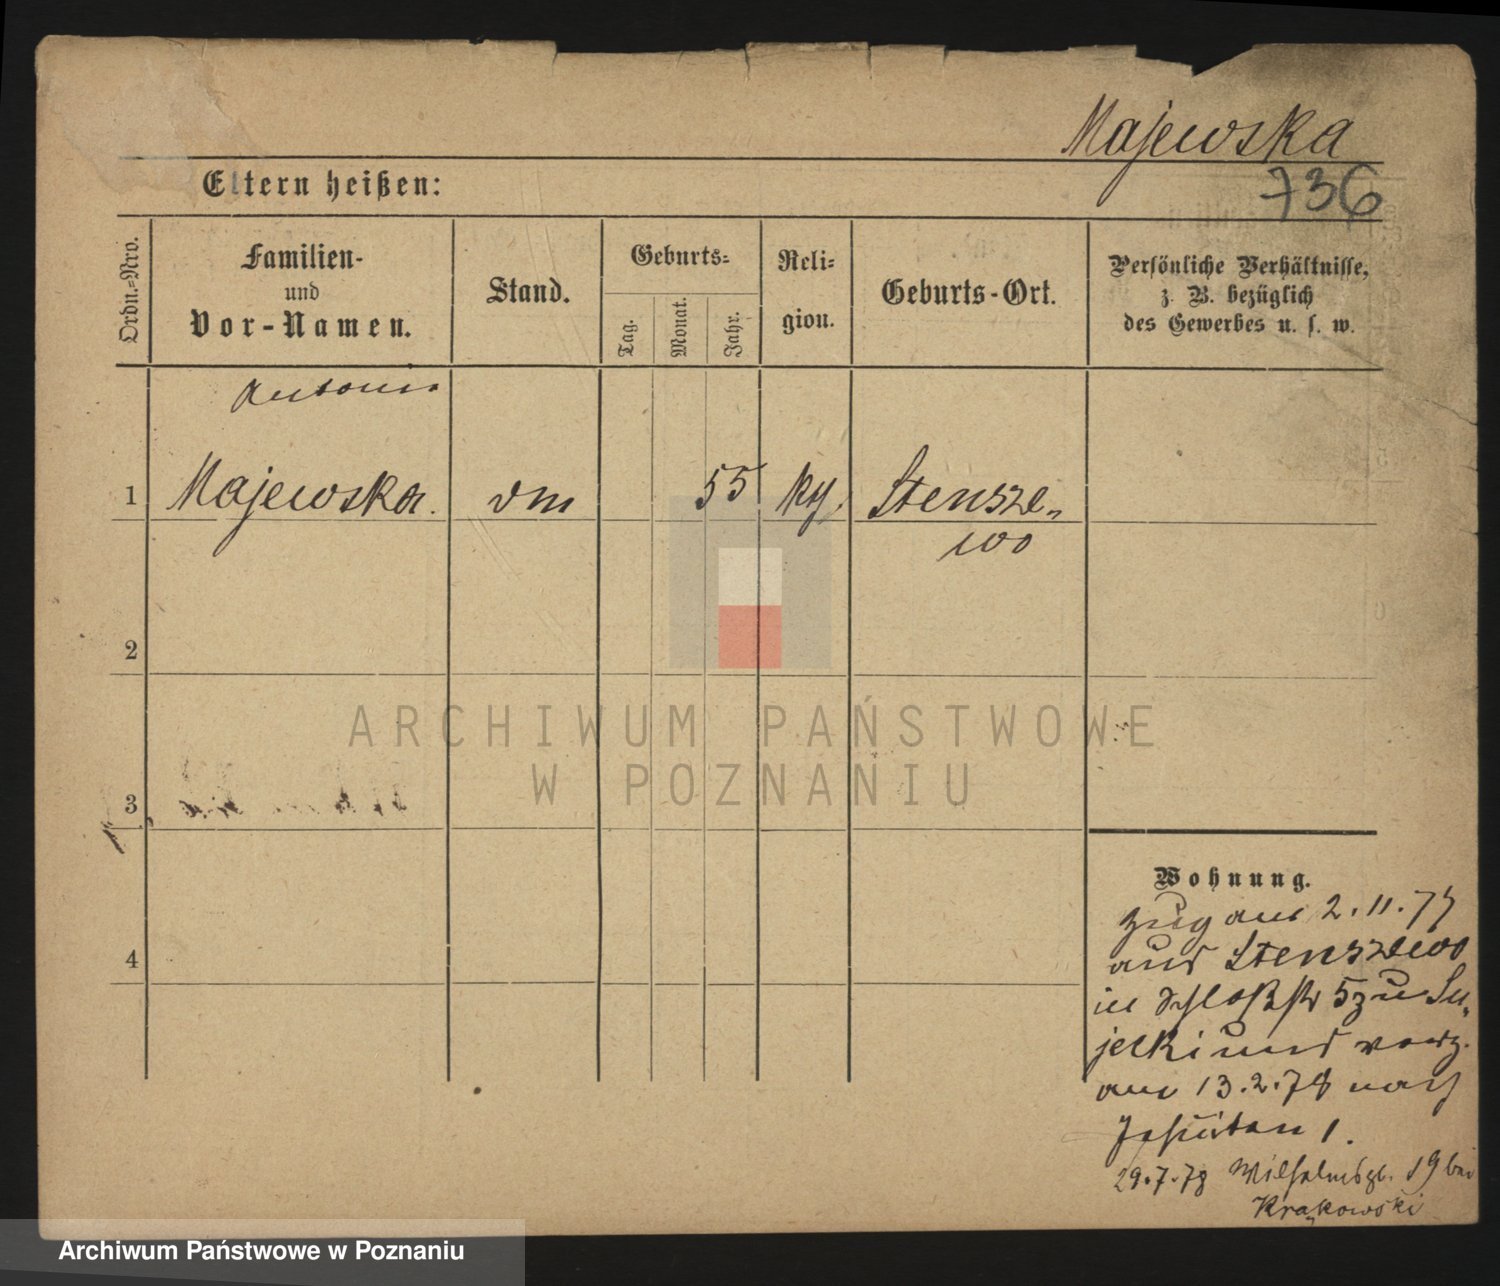 Majewska
736
Eltern heißen:
Ordn.-Nro.
Familien-
und
Vor-Namen.
Stand.
Geburts-
Tag.
Monat.
Jahr.
Reli-
gion.
Geburts-Ort.
Persönliche Verhältnisse,
z. B. bezüglich
des Gewerbes u. s. w.
1
Majewska.
55
Stensze-
wo
2
3
4
ARCHIWUM PAŃSTWOWE
W POZNANIU
Wohnung.
zug am 2.11.77
aus Stenszewo
in Schloßstr 5 zu
und verz.
am 13.2.78 nach
Jesuiten 1.
29.7.78 Wilhelmspl. 19 bei
Krąkowski
Archiwum Państwowe w Poznaniu